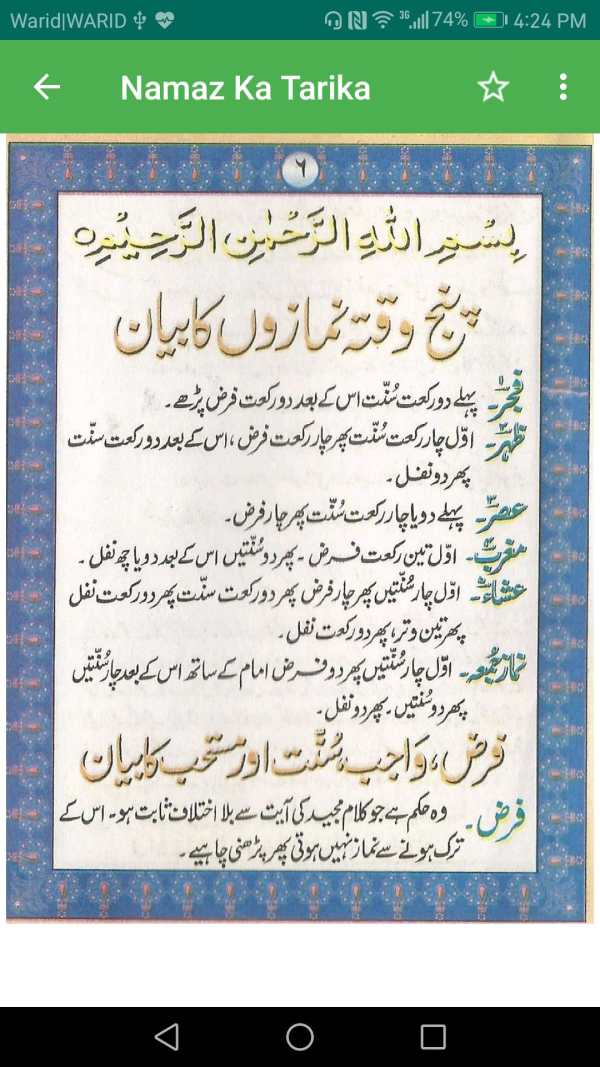 Warid|WARID 3G 74% 4:24 PM
Namaz Ka Tarika
۶
بِسْمِ اللّٰهِ الرَّحْمٰنِ الرَّحِيْمِ ○
پنج وقتہ نمازوں کا بیان
فجر۱۔ پہلے دو رکعت سُنّت اس کے بعد دو رکعت فرض پڑھے۔
ظہر۲۔ اوّل چار رکعت سُنّت پھر چار رکعت فرض، اس کے بعد دو رکعت سنّت
پھر دو نفل۔
عصر۳۔ پہلے دو یا چار رکعت سُنّت پھر چار فرض۔
مغرب۴۔ اوّل تین رکعت فرض۔ پھر دو سُنّتیں اس کے بعد دو یا چھ نفل۔
عشاء۵۔ اوّل چار سُنّتیں پھر چار فرض پھر دو رکعت سنّت پھر دو رکعت نفل
پھر تین وتر، پھر دو رکعت نفل۔
نماز جمعہ۔ اوّل چار سُنّتیں پھر دو فرض امام کے ساتھ اس کے بعد چار سُنّتیں
پھر دو سُنّتیں۔ پھر دو نفل۔
فرض، واجب، سُنّت اور مستحب کا بیان
فرض۔ وہ حکم ہے جو کلام مجید کی آیت سے بلا اختلاف ثابت ہو۔ اس کے
ترک ہونے سے نماز نہیں ہوتی پھر پڑھنی چاہیے۔